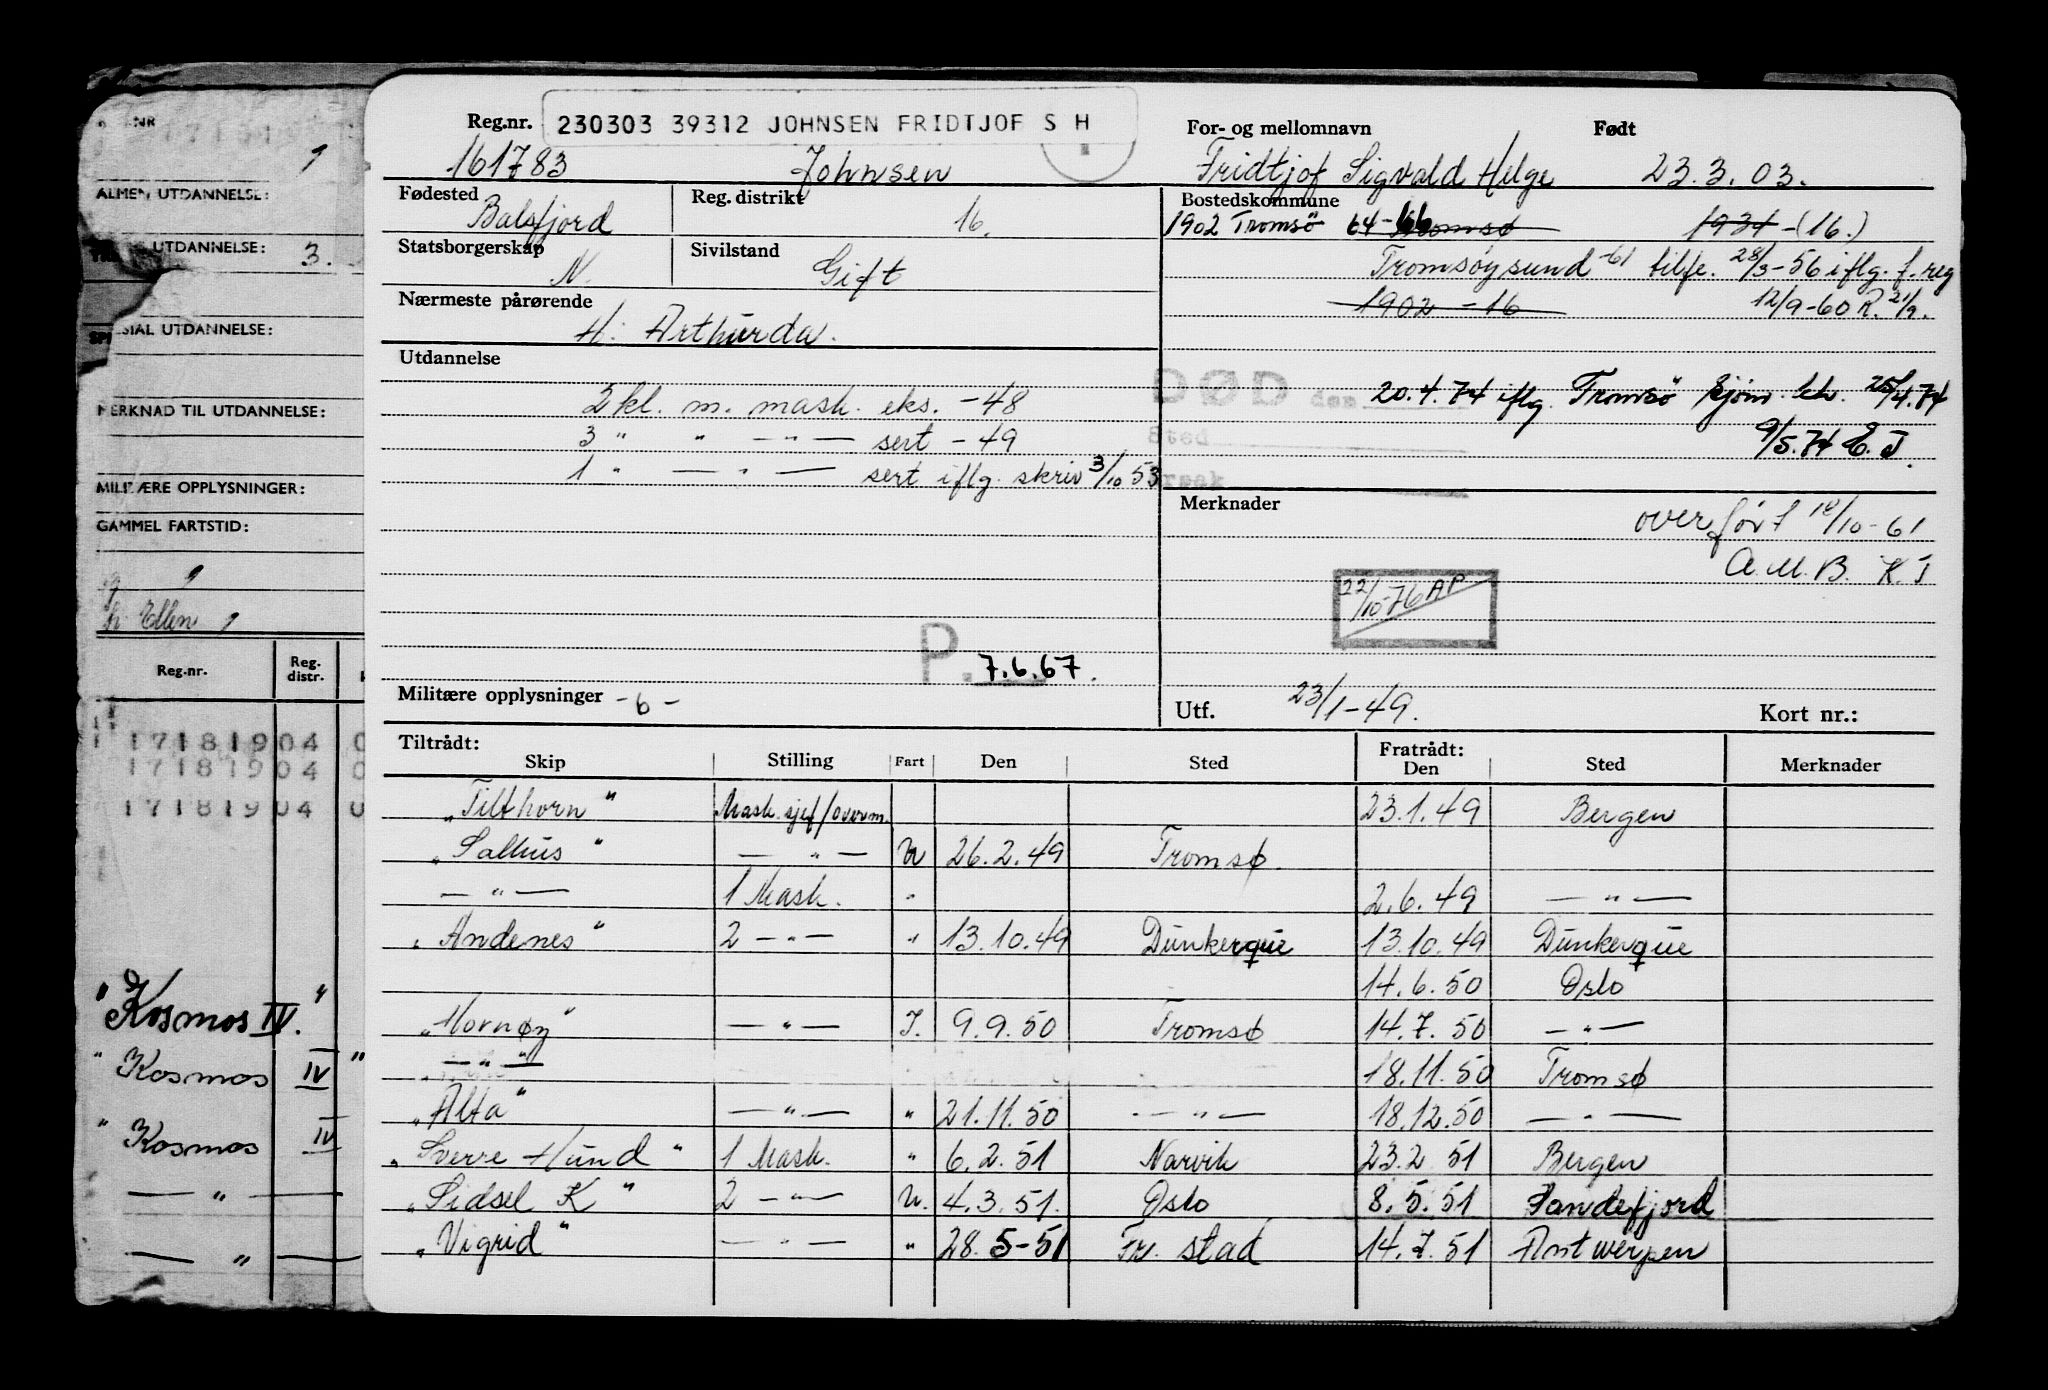 Reg.nr. 230303 39312 JOHNSEN FRIDTJOF S H For- og mellomnavn Født
161783 Johnsen Fridtjof Sigvald Helge 23.3.03.
Fødested Balsfjord Reg. distrikt 16. Bostedskommune
1902 Tromsö 64-66 Tromsø 1931-(16.)
Statsborgerskap N. Sivilstand Gift
Tromsøysund -61 tilfe. 28/3-56 iflg. f. reg
Nærmeste pårørende H: Arthurda.
1902 - 16 12/9-60 R. 21/9.
Utdannelse
2 kl. m. mask. eks. -48
3 " " — " — sert - 49
1 " — " — sert iflg. skriv 3/10 53
DØD den 20.4.74 iflg. Tromsö sjöm. ktr. 25/4.74
Sted 9/5.74 E.J.
Årsak
Merknader
overført 18/10-61
A.M.B. K.J
22/10-76 AP
P. 7.6.67.
Militære opplysninger -6-
Utf. 23/1-49. Kort nr.:
Tiltrådt: Fratrådt:
Skip Stilling Fart Den Sted Den Sted Merknader
"Tilthorn" Mask.sjef/overm. 23.1.49 Bergen
"Salhus" — " — U 26.2.49 Tromsø.
— " — 1 Mask. " 2.6.49 — " —
"Andenes" 2 — " — " 13.10.49 Dunkerque 13.10.49 Dunkerque
14.6.50 Oslo
"Mornøy" — " — I. 9.9.50 Tromsø 14.7.50 — " —
— " — 18.11.50 Tromsø
"Alta" — " — " 21.11.50 — " — 18.12.50 — " —
"Sverre Hund" 1 Mask. " 6.2.51 Narvik 23.2 51 Bergen
"Sidsel K" 2 — " — U. 4.3.51. Oslo 8.5.51 Sandefjord
"Vigrid" — " — " 28.5-51 Fr. stad 14.7.51 Antwerpen
NR
ALMEN UTDANNELSE:
UTDANNELSE: 3.
SPESIAL UTDANNELSE:
MERKNAD TIL UTDANNELSE:
MILITÆRE OPPLYSNINGER:
GAMMEL FARTSTID:
h: Ellen
Reg.nr. Reg. distr.
17181904 0
17181904 0
17181904 0
"Kosmos IV."
"Kosmos IV"
"Kosmos IV
— " —
— " —